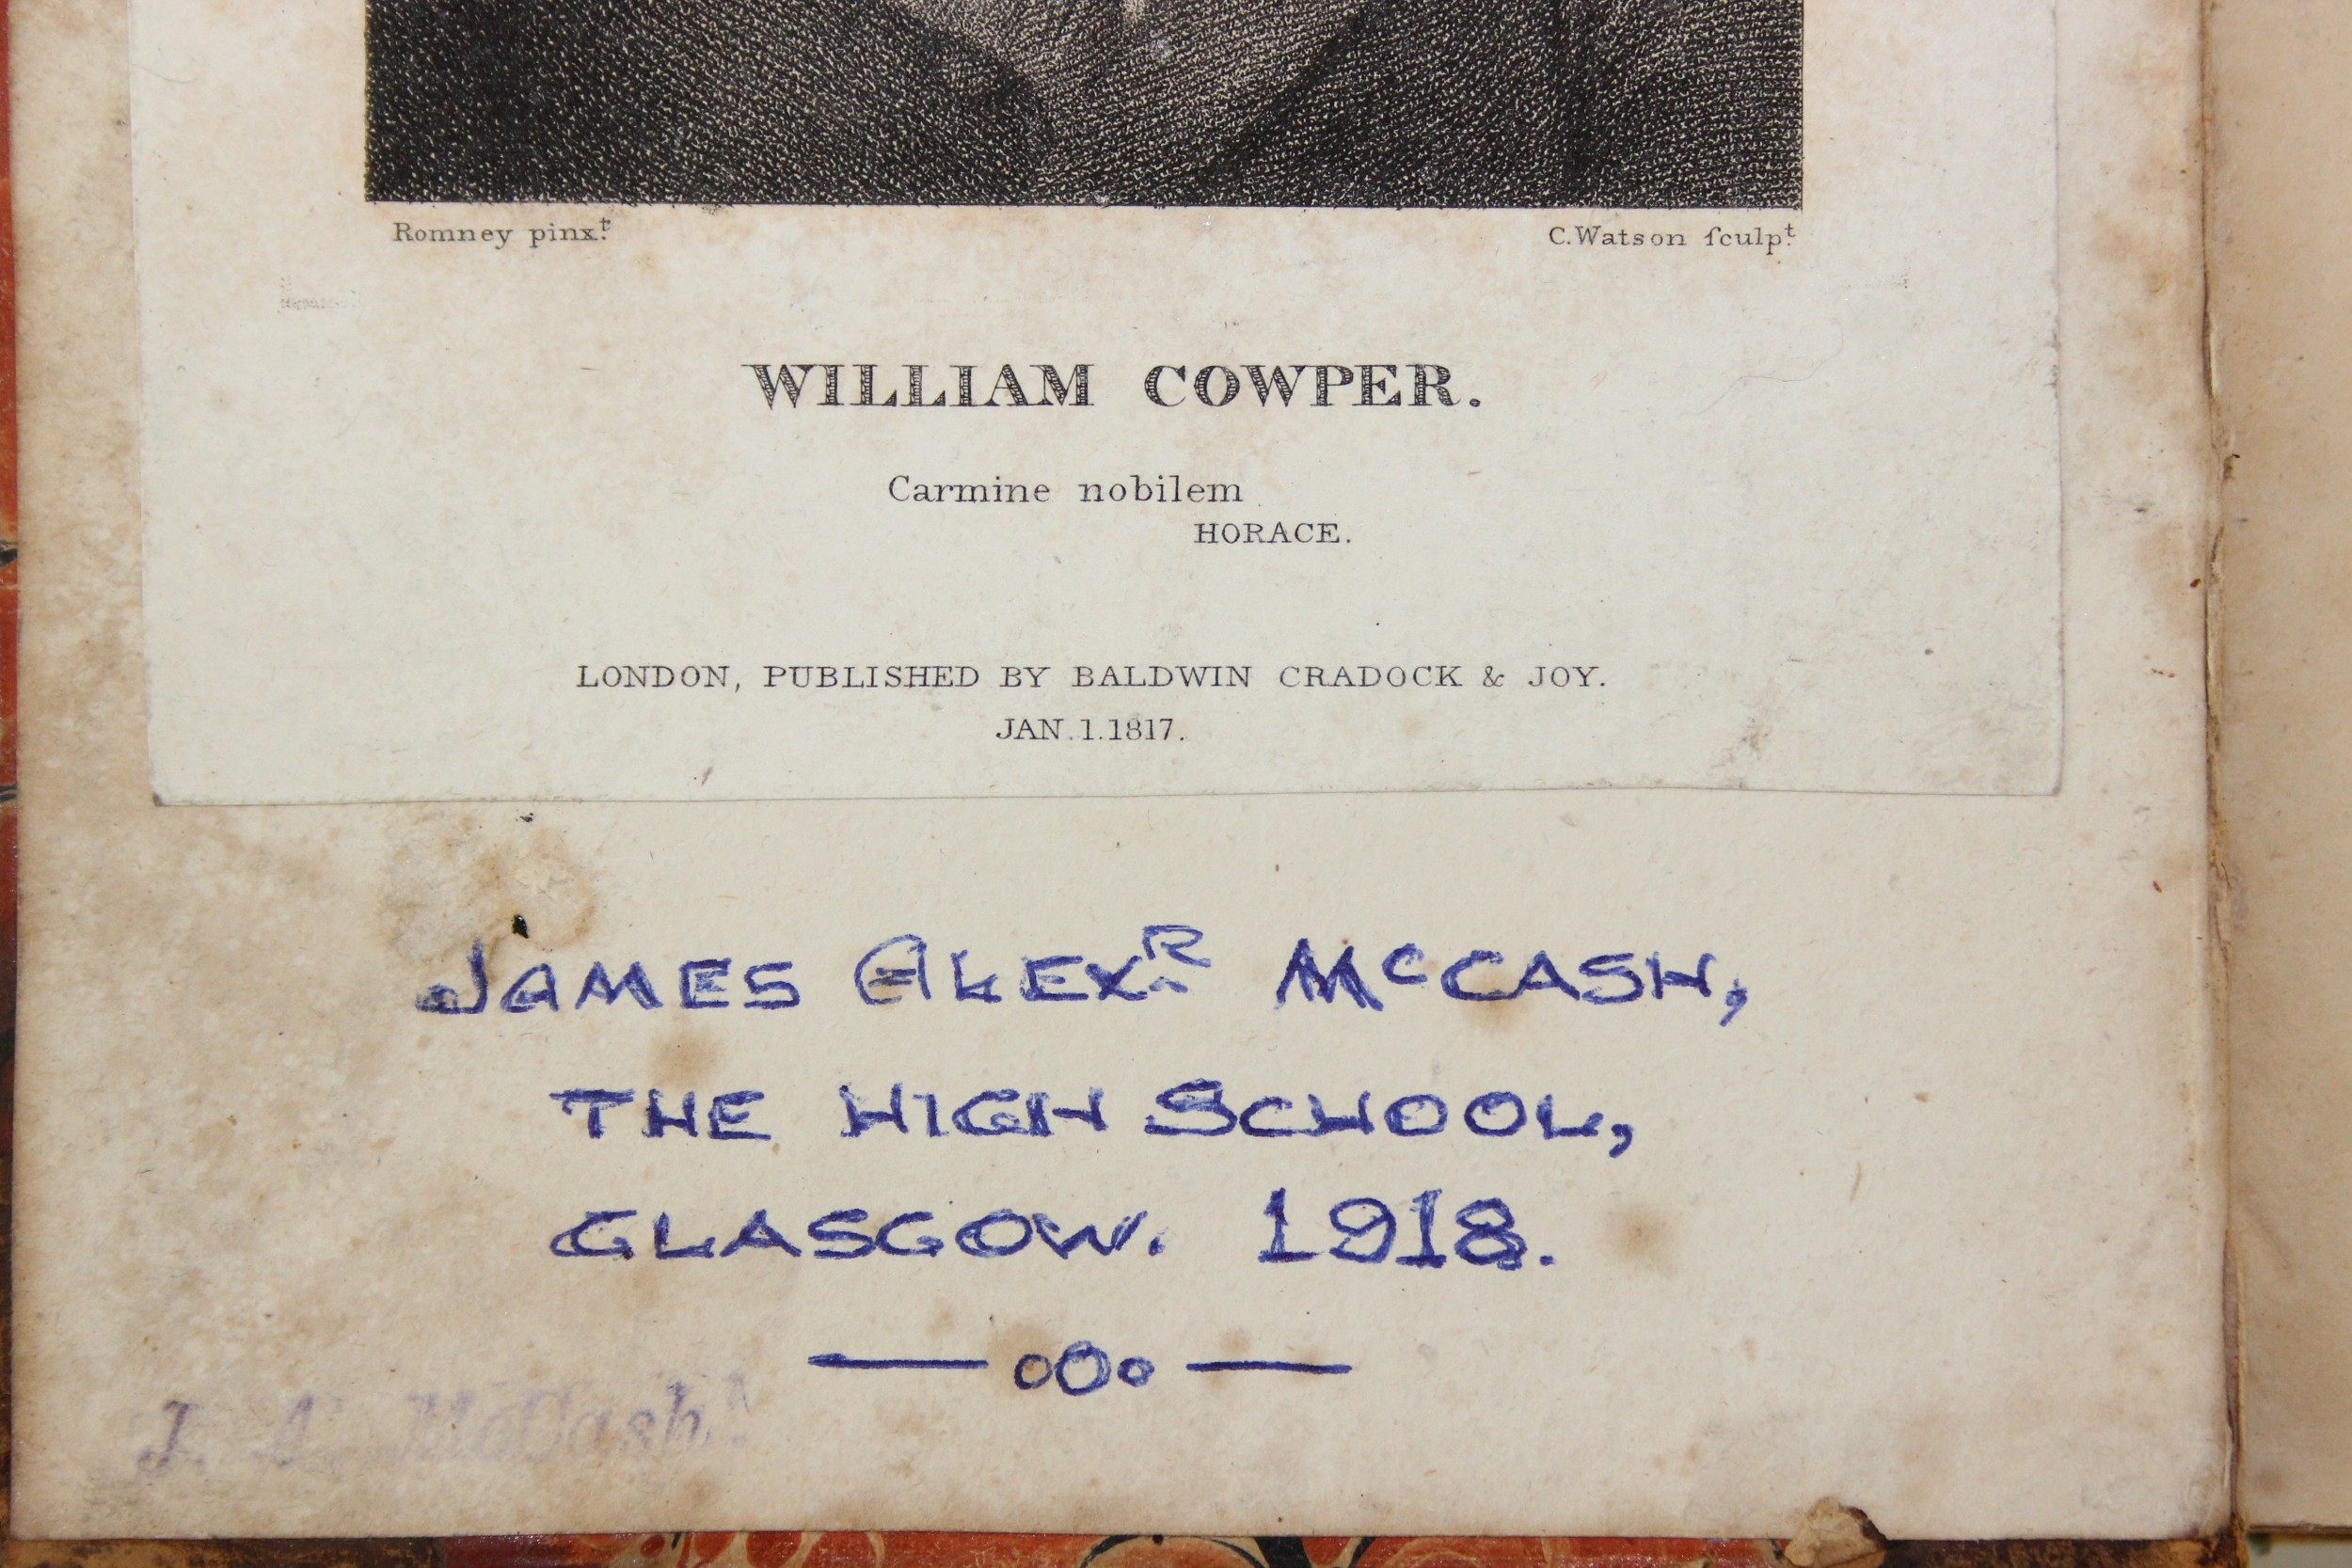 Romney pinx.t C.Watson ſculp.t
WILLIAM COWPER.
Carmine nobilem
HORACE.
LONDON, PUBLISHED BY BALDWIN CRADOCK & JOY.
JAN.1.1817.
JAMES ALEX.R McCASH,
THE HIGH SCHOOL,
GLASGOW. 1918.
—oOo—
J. A. McCash.